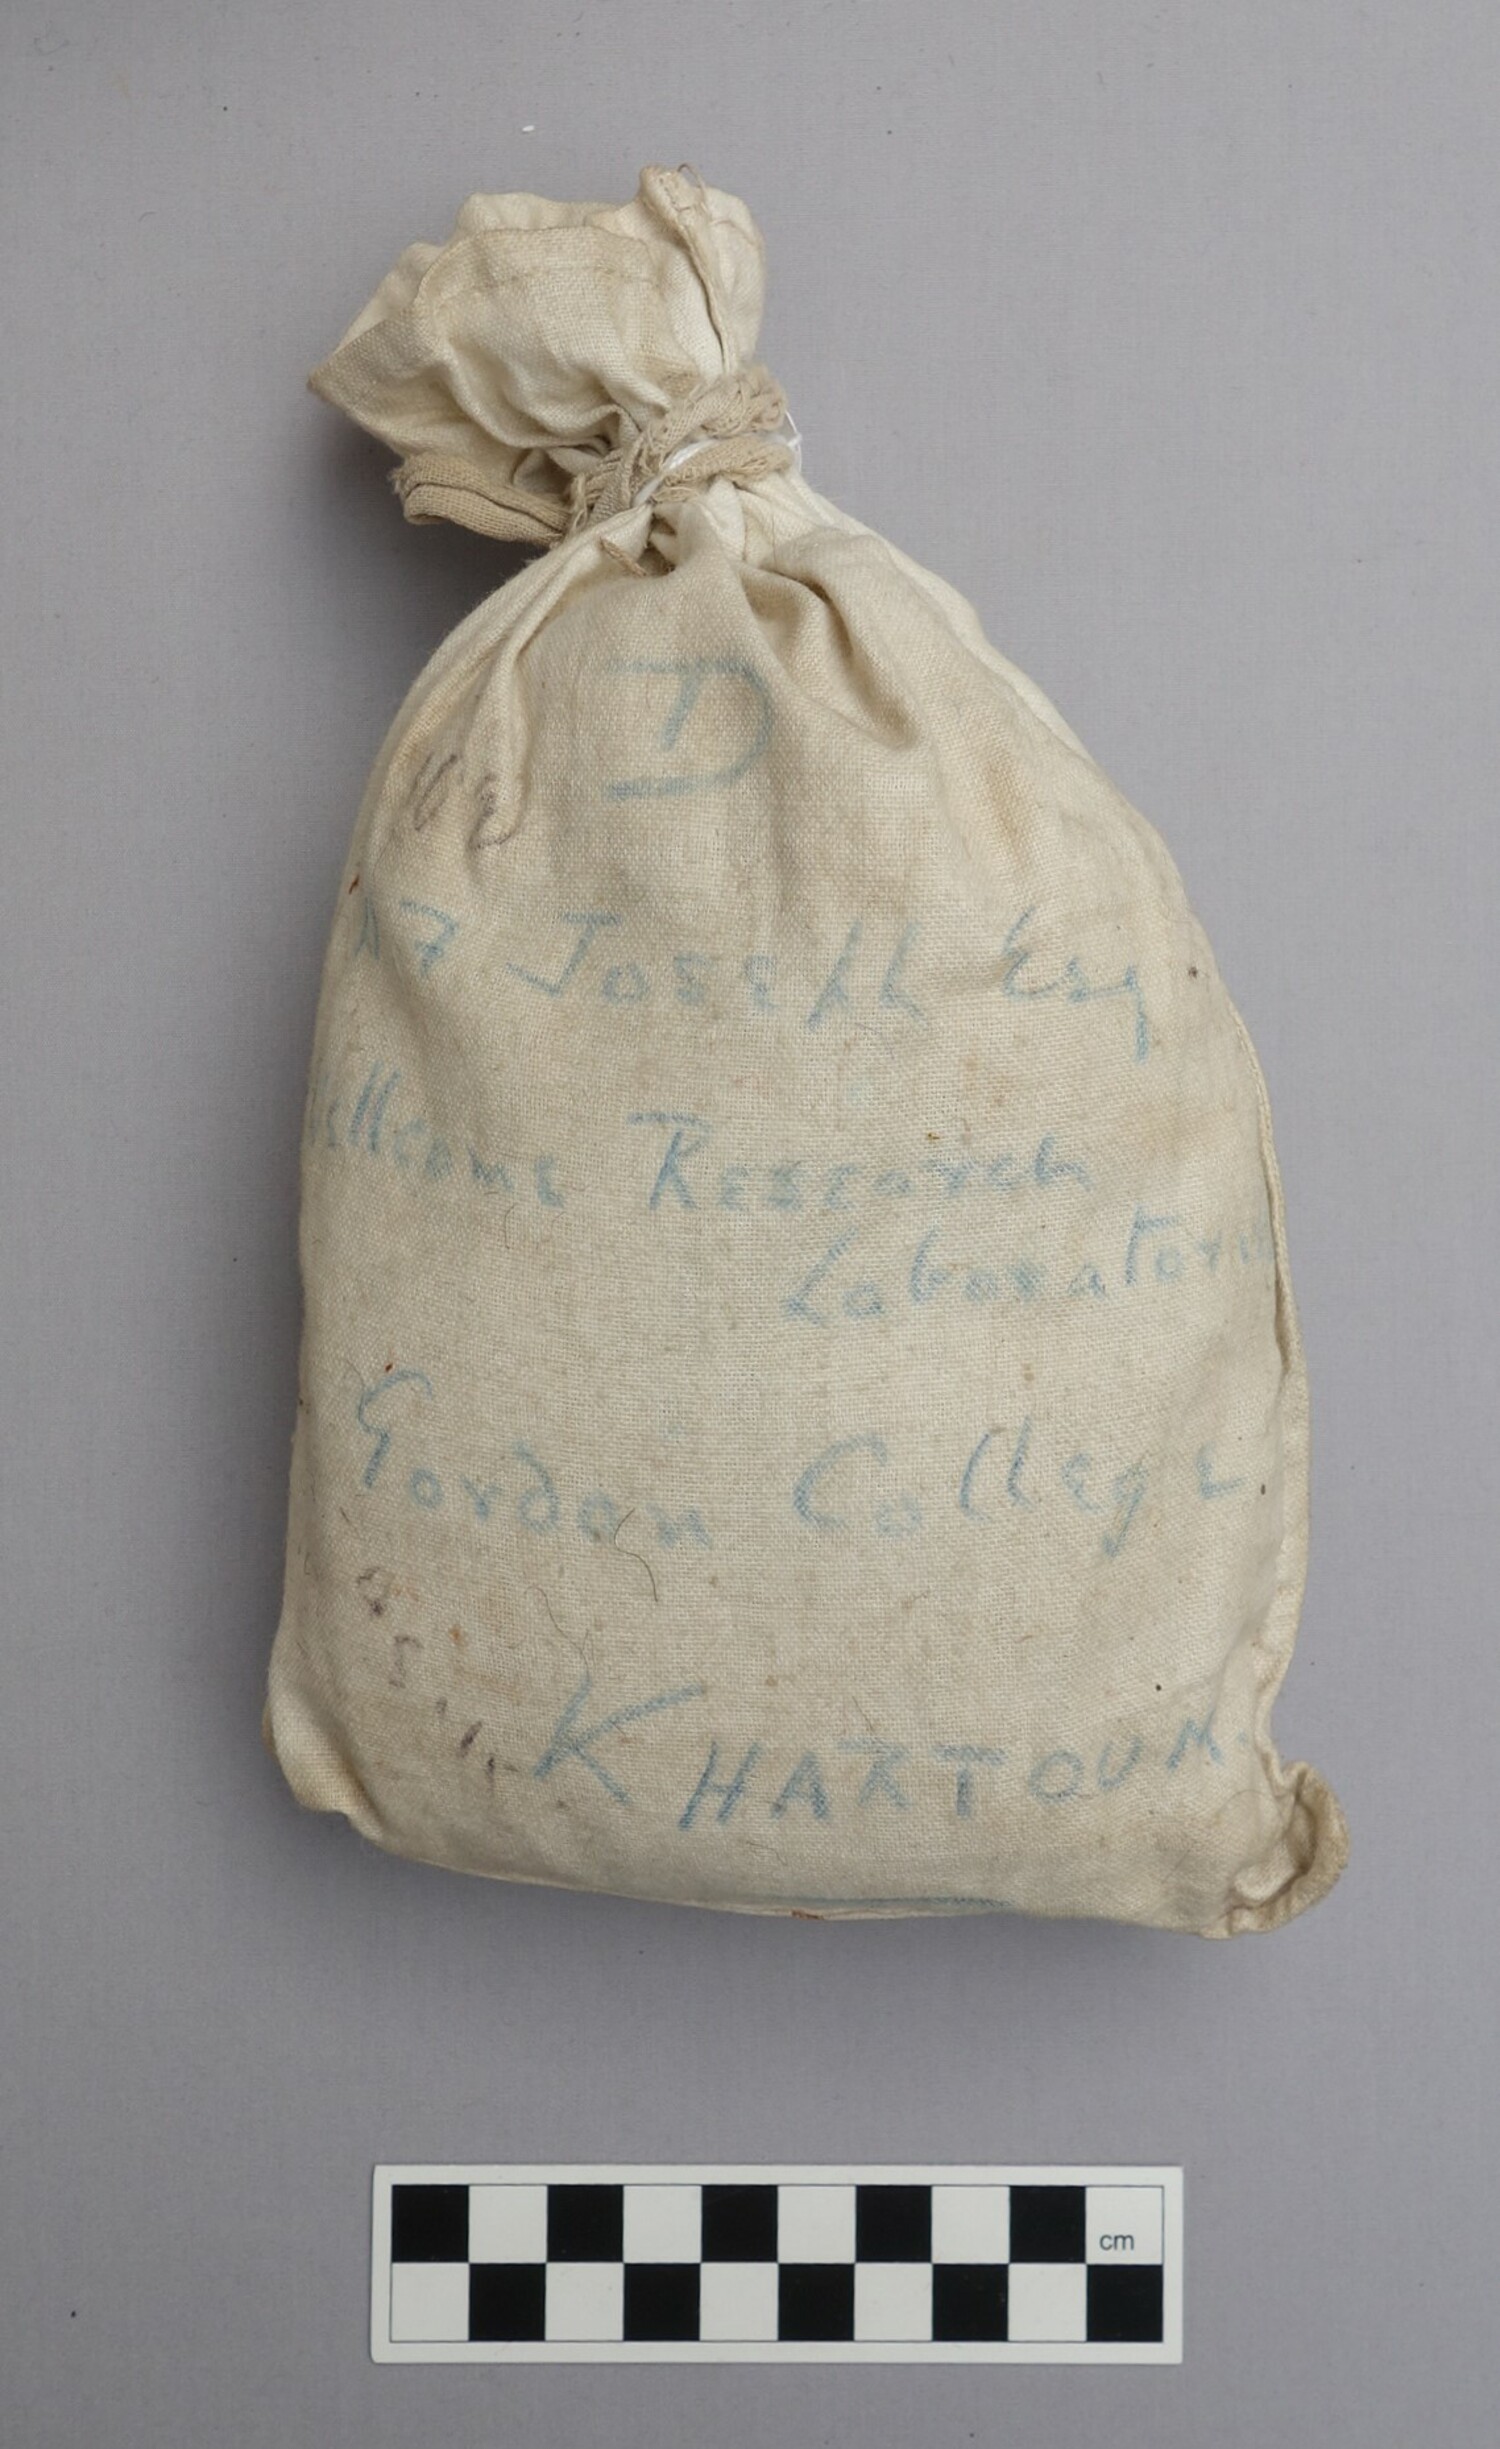 D
A F Joseph Esq
Wellcome Research
Laboratories
Gordon College
KHARTOUM.
cm